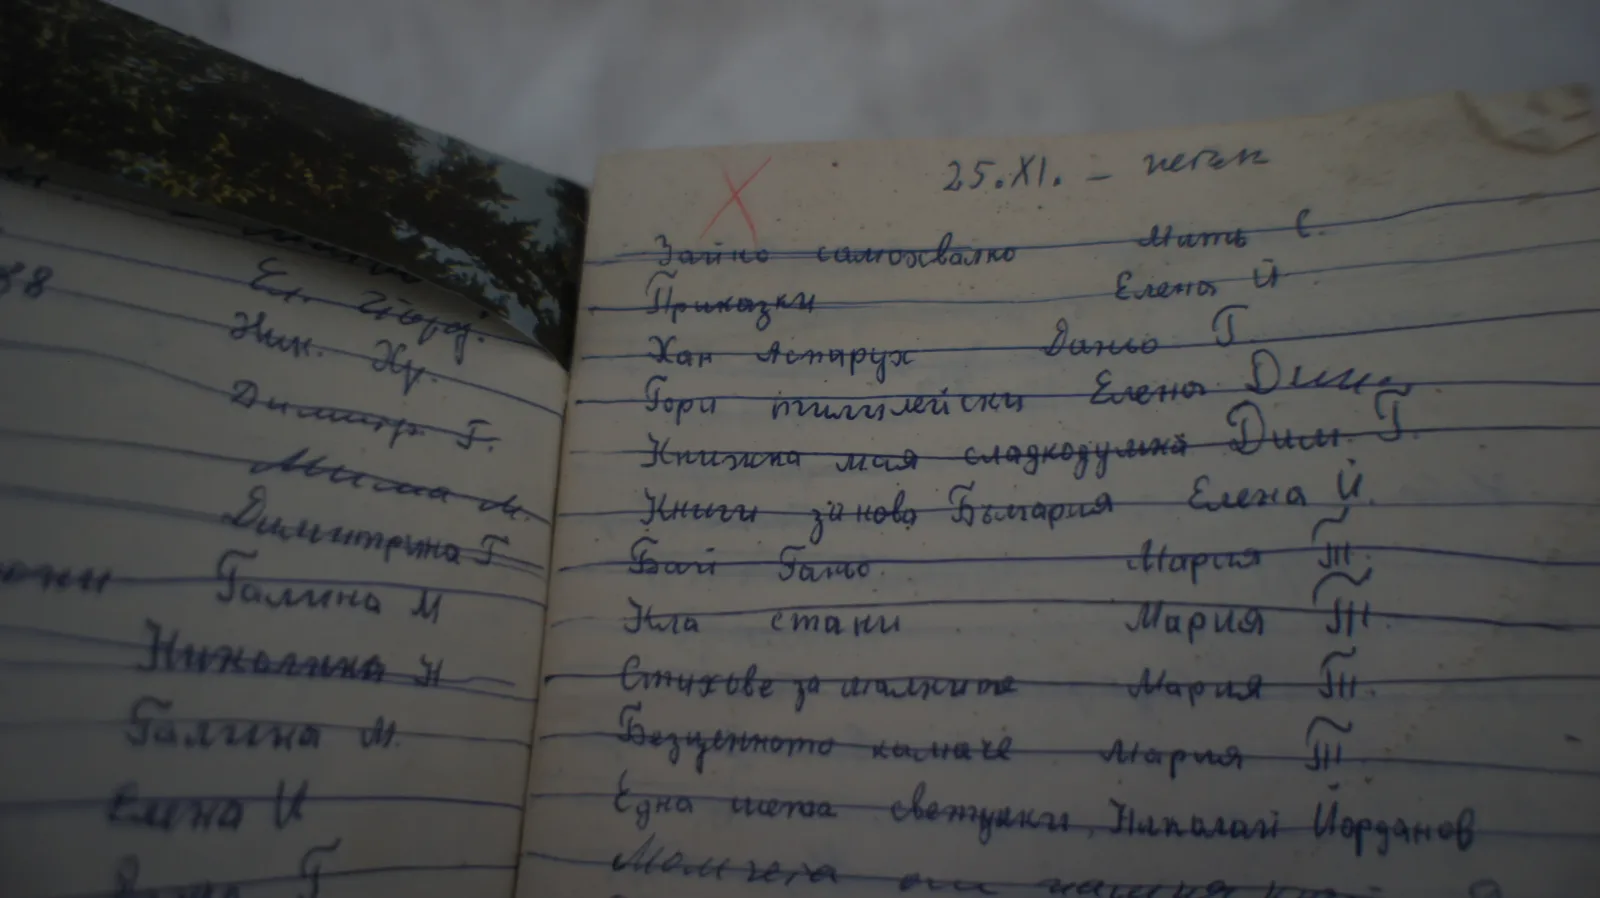 38 Ел. Йорд.
Ник. Хр.
Димитр Г.
Мима М.
Димитрина Г
Галина М
Николина Н
Галина М.
Елена И
Г
25.XI. – петък
Зайко самохвалко Мить С.
Приказки Елена Й
Хан Аспарух Даньо Г.
Гори Елена Дим.
Книжка моя сладкодумна Дим. Г.
Книги за нова България Елена Й.
Бай Ганьо. Мария Т.
Ела стани Мария Т.
Стихове за малките Мария Т.
Безценното камаче Мария Т
Една шепа светулки Николай Йорданов
Момчета от